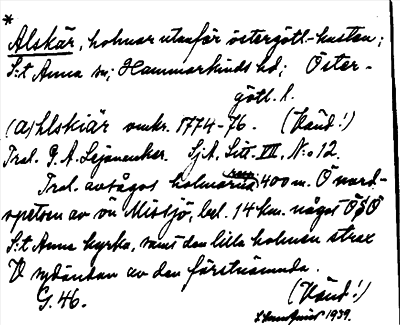 *
Alskär, holmar utanför östergötl-kusten;
S:t Anna sn; Hammarkinds hd; Öster-
götl. l.
(A)hlskiär omkr. 1774-76. (Vänd!)
Trol. G. A. Lejonancker. Sj.A. Litt. VII. N:o 12.
Trol. avsågos holmarna 400 m. Ö nord-
spetsen av ön Missjö, bel. 14 km. något ÖSÖ
S:t Anna kyrka, samt den lilla holmen strax
V sydändan av den förstnämnda.
G. 46. (Vänd!)
1939.